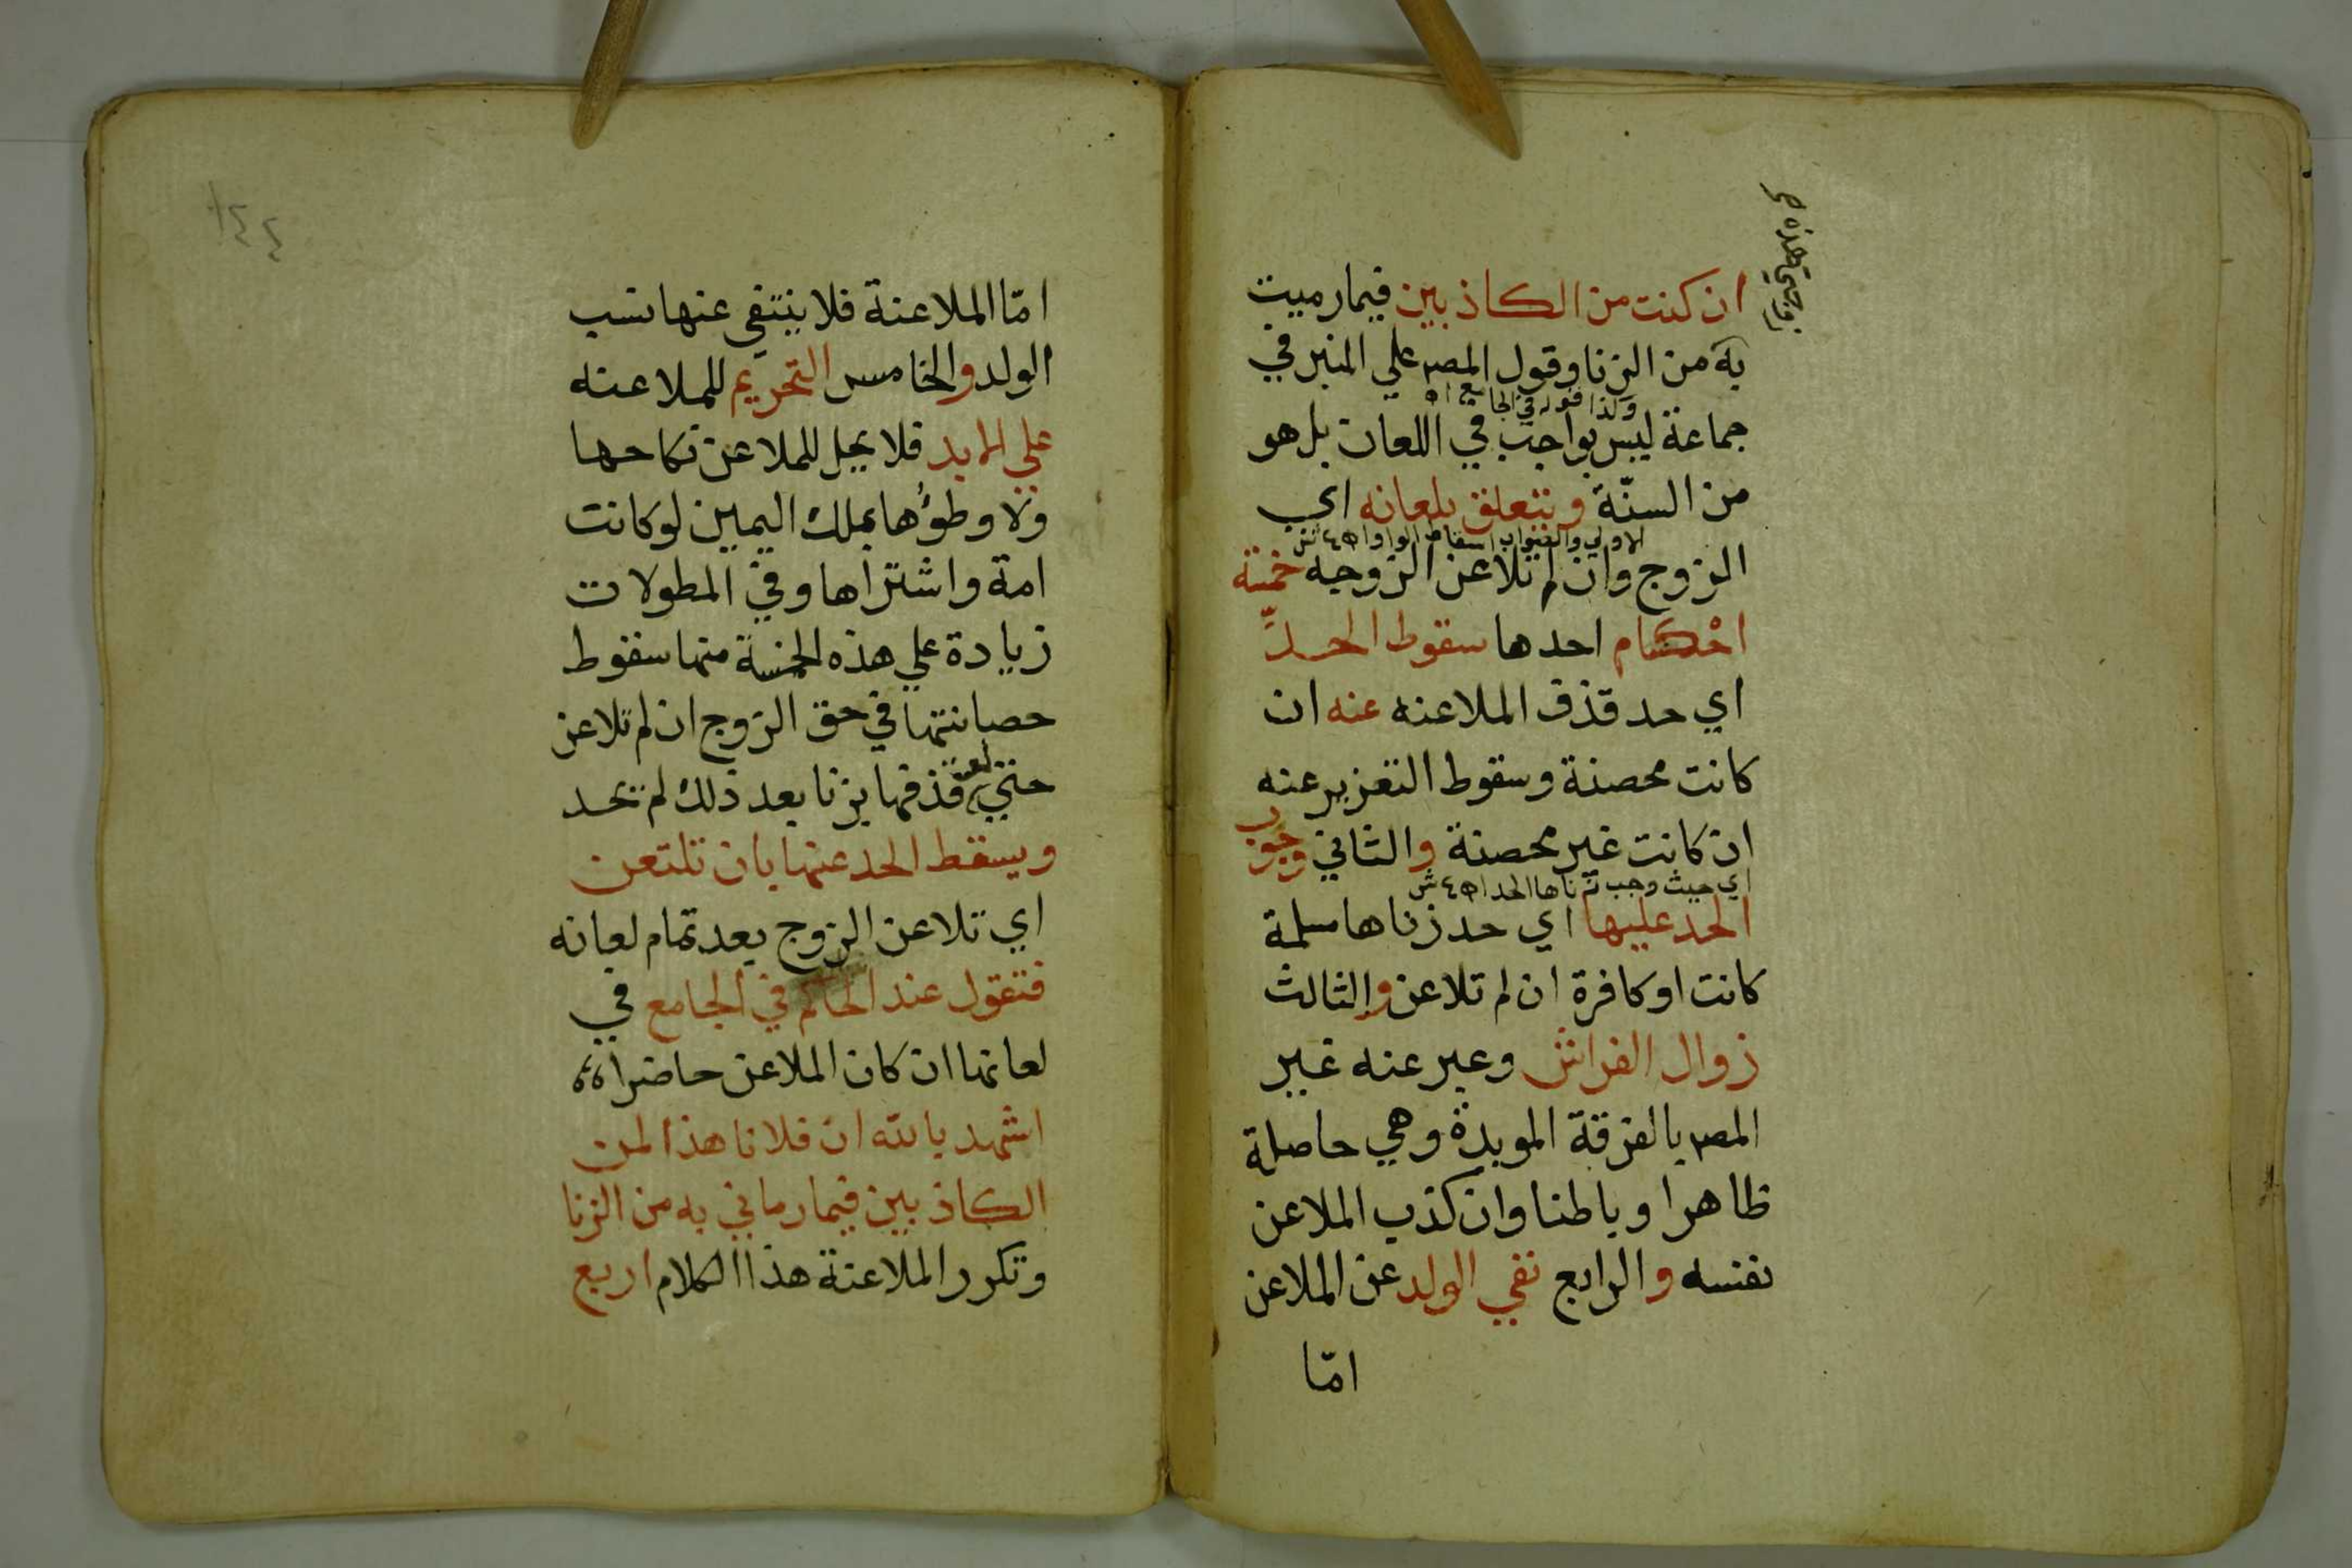 ان كنت من الكاذبين فيما رميت
به من الزنا وقول المص علي المنبر في
ولذا قوله في الجامع اه
جماعة ليس بواجب في اللعان بل هو
من السنّة ويتعلق بلعانه اي
الاولي والصواب اسقاط الواو اه ع ش
الزوج وان لم تلاعن الزوجه خمسة
احْكام احدها سقوط الحدِّ
اي حد قذف الملاعنه عنه ان
كانت محصنة وسقوط التعزير عنه
ان كانت غير محصنة والثاني وجوب
اي حيث وجب بزناها الحد اه ع ش
الحد عليها اي حد زناها مسلمة
كانت او كافرة ان لم تلاعن والثالث
زوال الفراش وعبر عنه غير
المص بالفرقة الموبدة وهي حاصلة
ظاهرا وباطنا وان كذب الملاعن
نفسه والرابع نفي الولد عن الملاعن
امّا
١٤٤
امّا الملاعنة فلا ينتفي عنها نسب
الولد والخامس التحريم للملاعنه
علي الابد فلا يحل للملاعن نكاحها
ولا وطؤها بملك اليمين لو كانت
امة واشتراها وفي المطولات
زيادة علي هذه الخمسة منها سقوط
حصانتها في حق الزوج ان لم تلاعن
حتي لو قذفها بزنا بعد ذلك لم يحد
ويسقط الحد عنها بان تلتعن
اي تلاعن الزوج بعد تمام لعانه
فتقول عند الحاكم في الجامع في
لعانها ان كان الملاعن حاضرا
اشهد بالله ان فلانا هذا لمن
الكاذبين فيما رماني به من الزنا
وتكرر الملاعنة هذا الكلام اربع